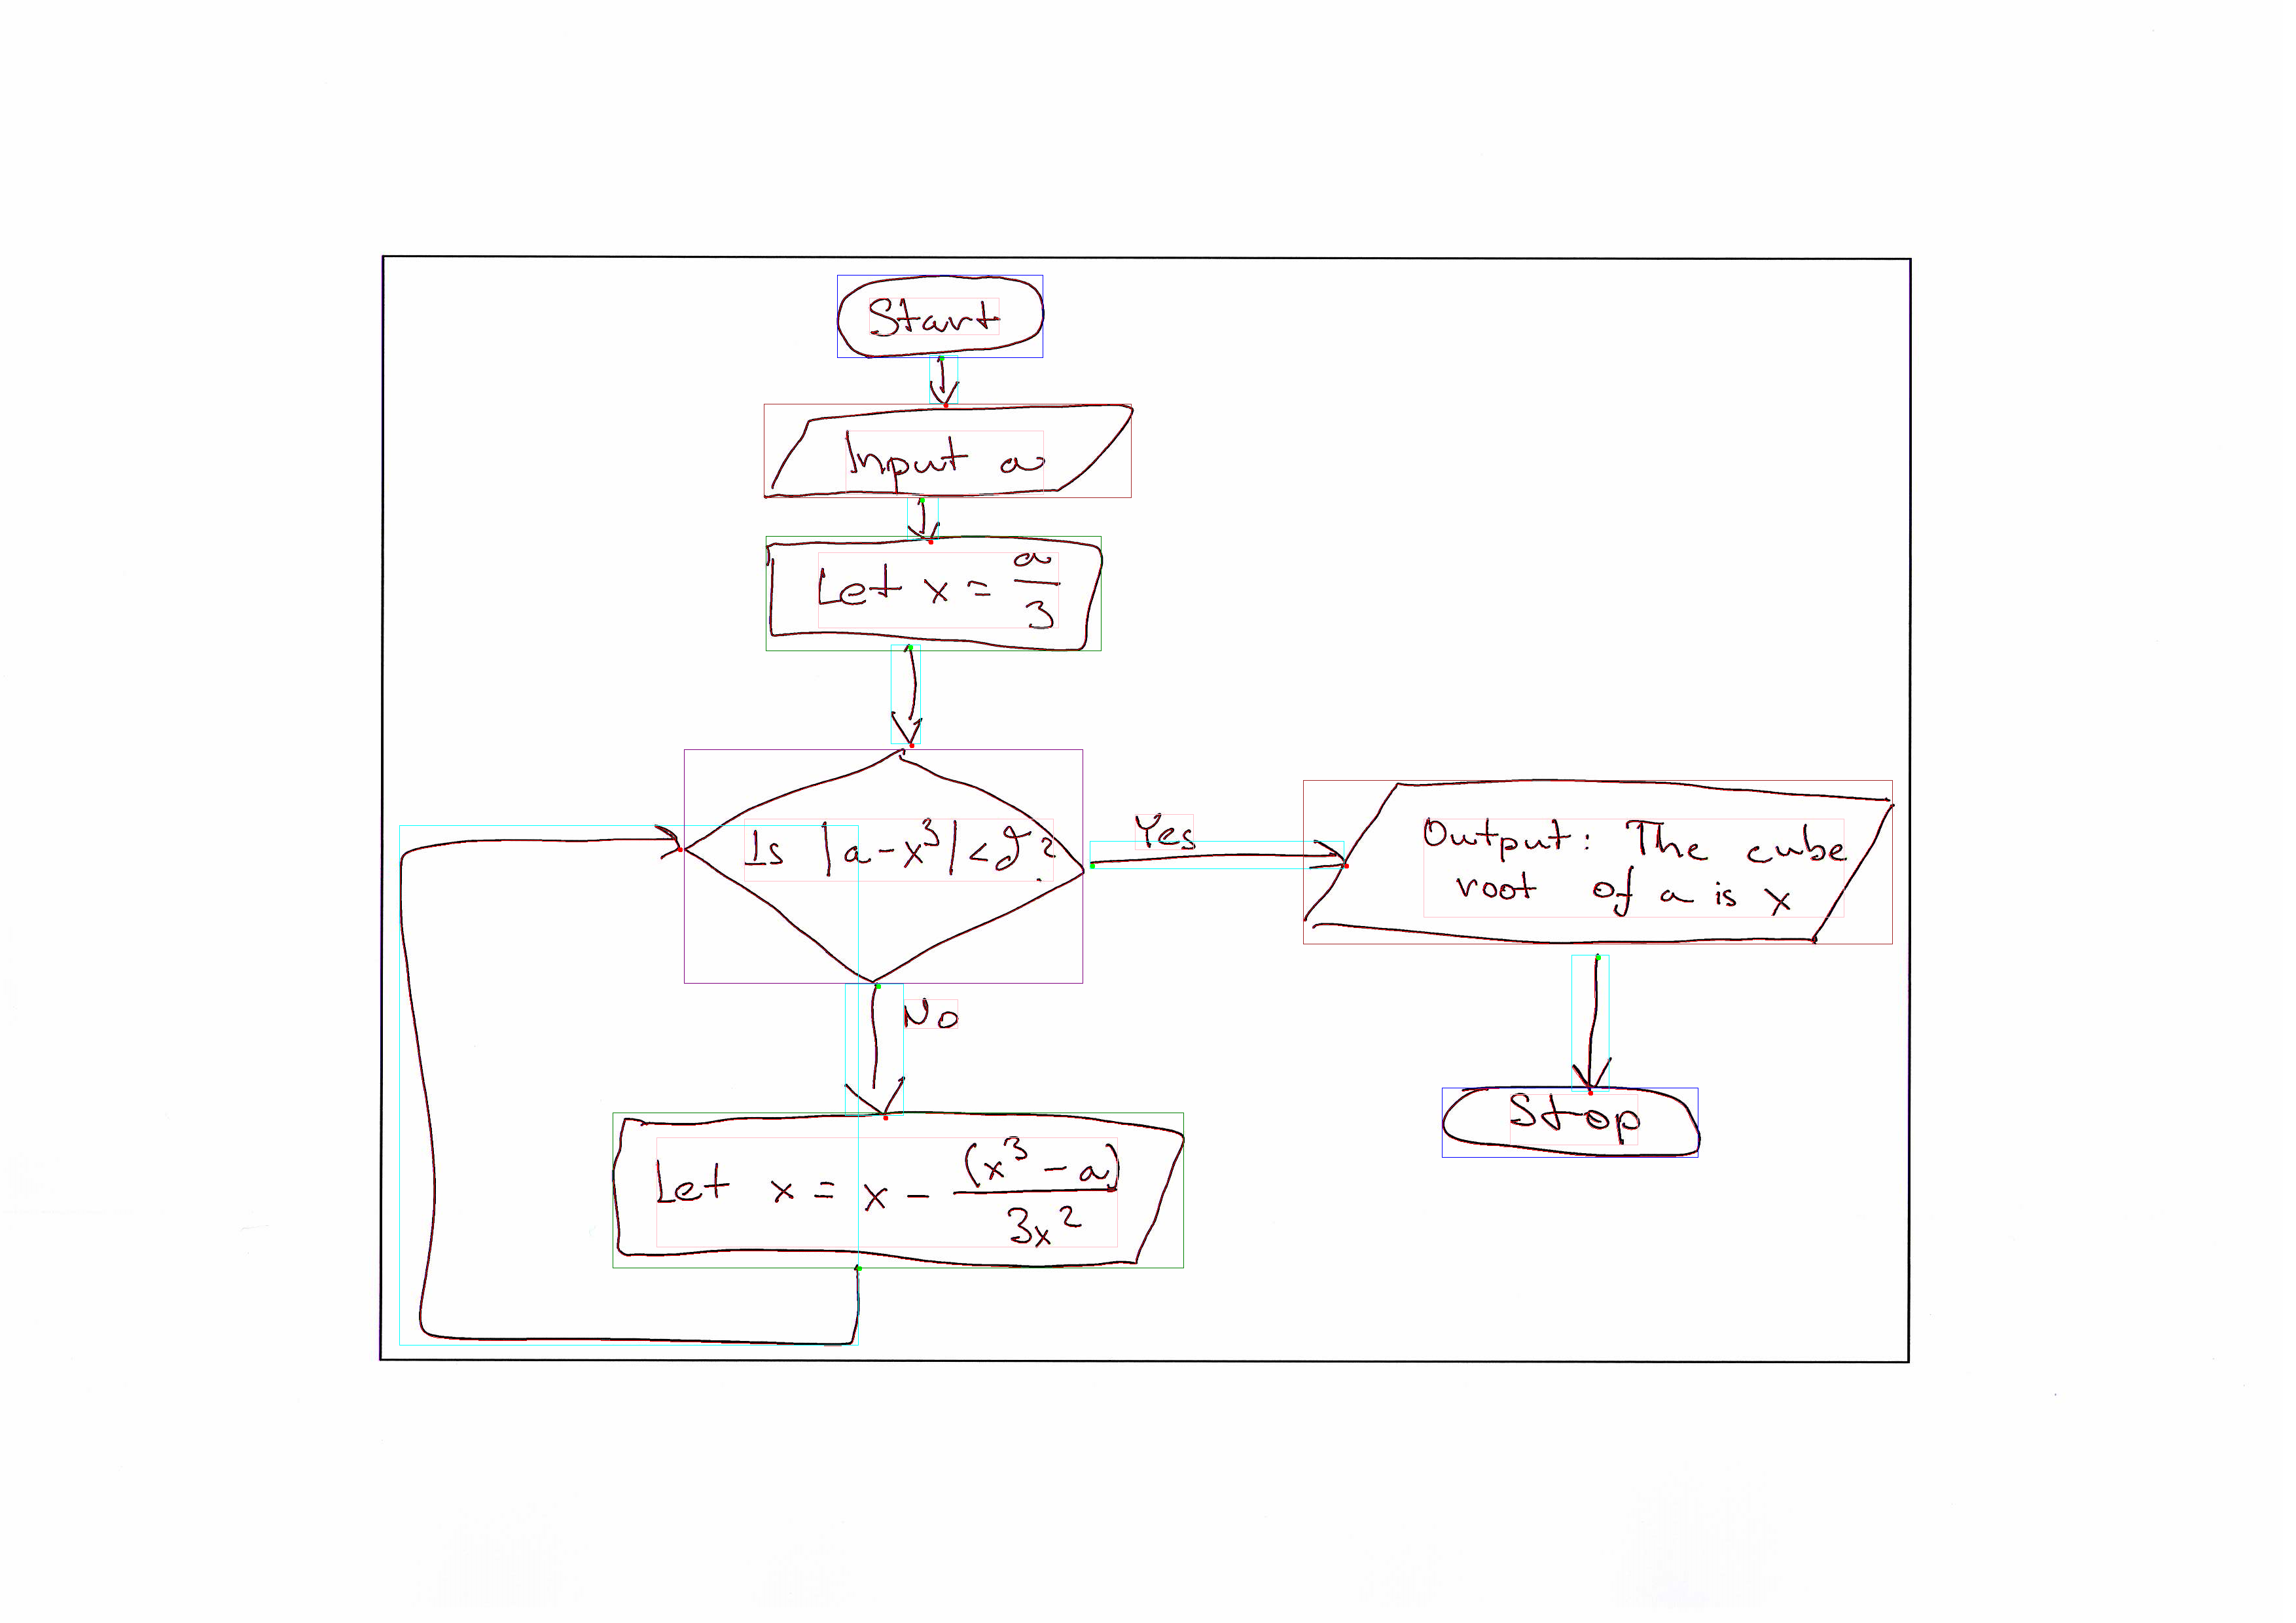 Start
Input a
Let x = a/3
Is |a-x³|<∂?
Yes
Output: The cube
root of a is x
No
Stop
Let x = x - (x³ - a)/3x²